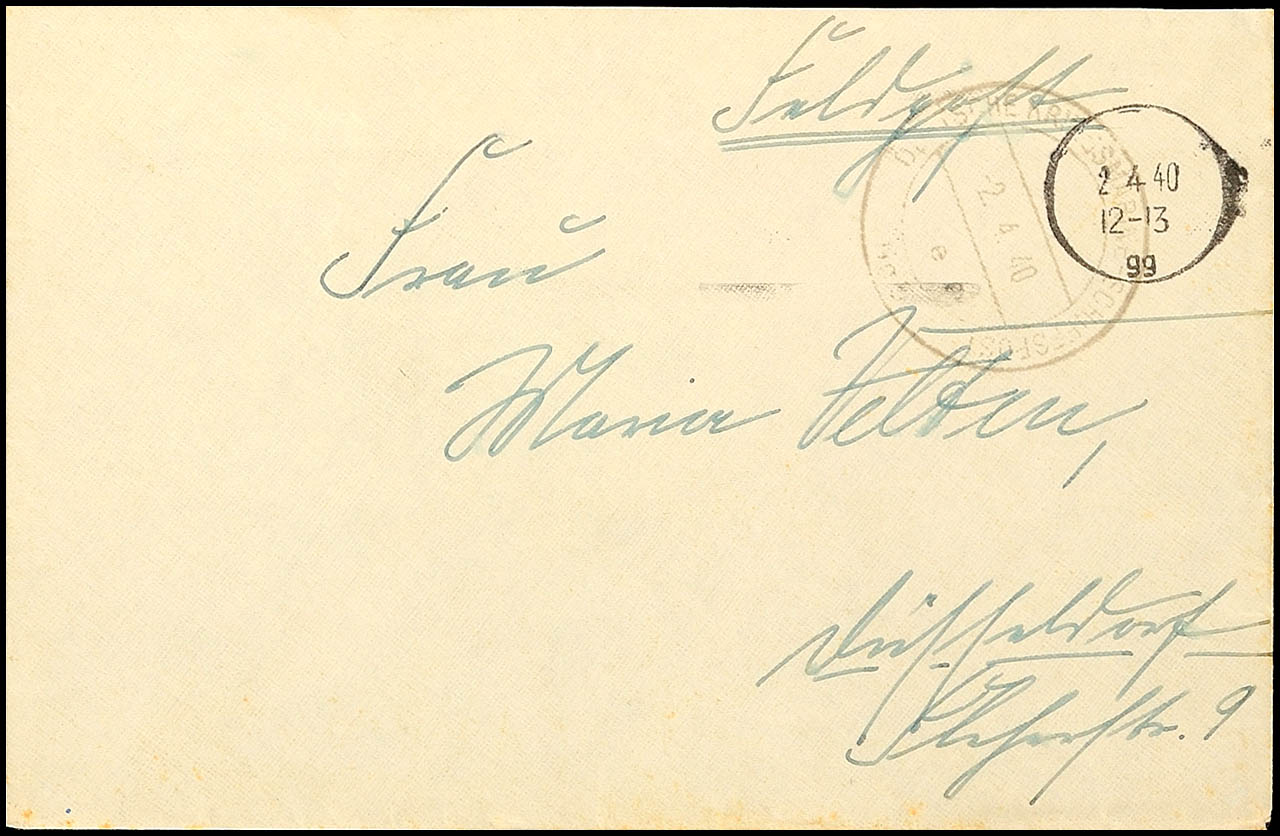 Feldpost
DEUTSCHE KRIEGSMARINE SCHIFFSPOST
2. 4. 40
e
2 4 40
12-13
99
Frau
Maria Velten,
Düsseldorf
9